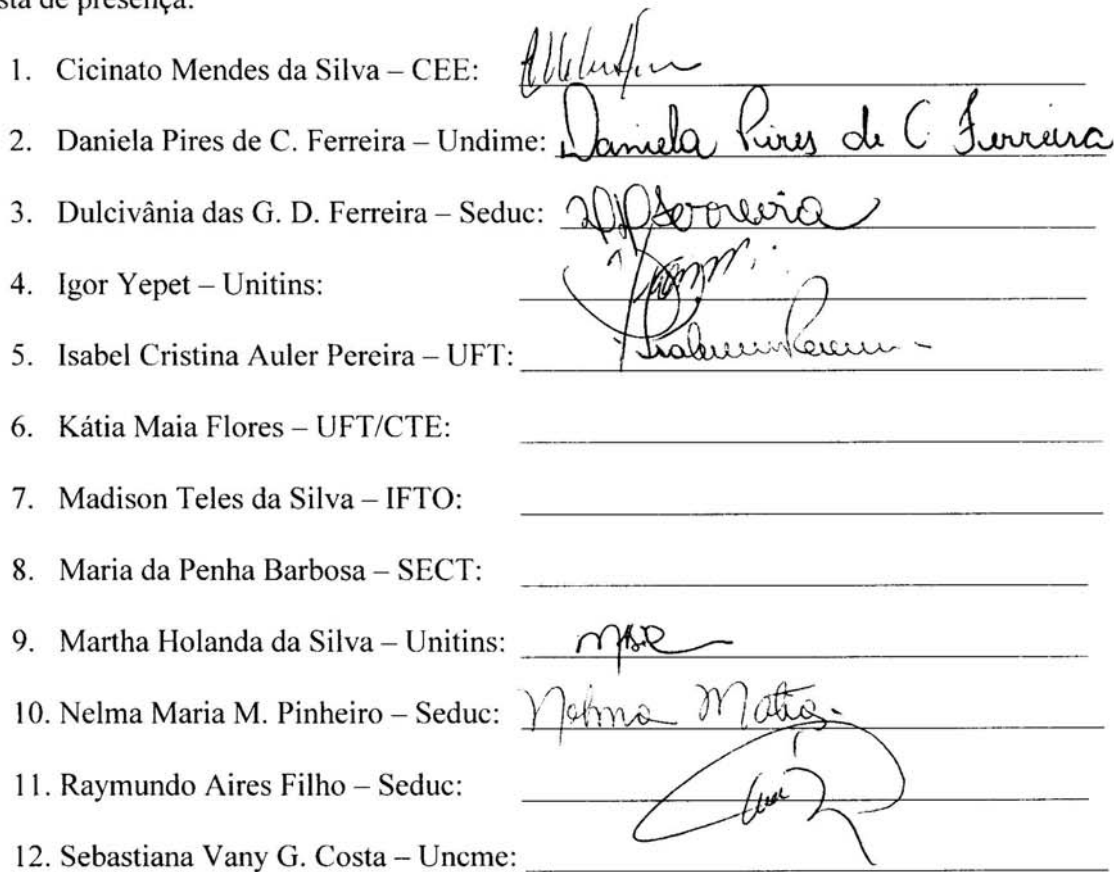 sta de presença:
1. Cicinato Mendes da Silva – CEE:
2. Daniela Pires de C. Ferreira – Undime: Daniela Pires de C Ferreira
3. Dulcivânia das G. D. Ferreira – Seduc: Ferreira
4. Igor Yepet – Unitins:
5. Isabel Cristina Auler Pereira – UFT:
6. Kátia Maia Flores – UFT/CTE:
7. Madison Teles da Silva – IFTO:
8. Maria da Penha Barbosa – SECT:
9. Martha Holanda da Silva – Unitins:
10. Nelma Maria M. Pinheiro – Seduc: Nelma
11. Raymundo Aires Filho – Seduc:
12. Sebastiana Vany G. Costa – Uncme: